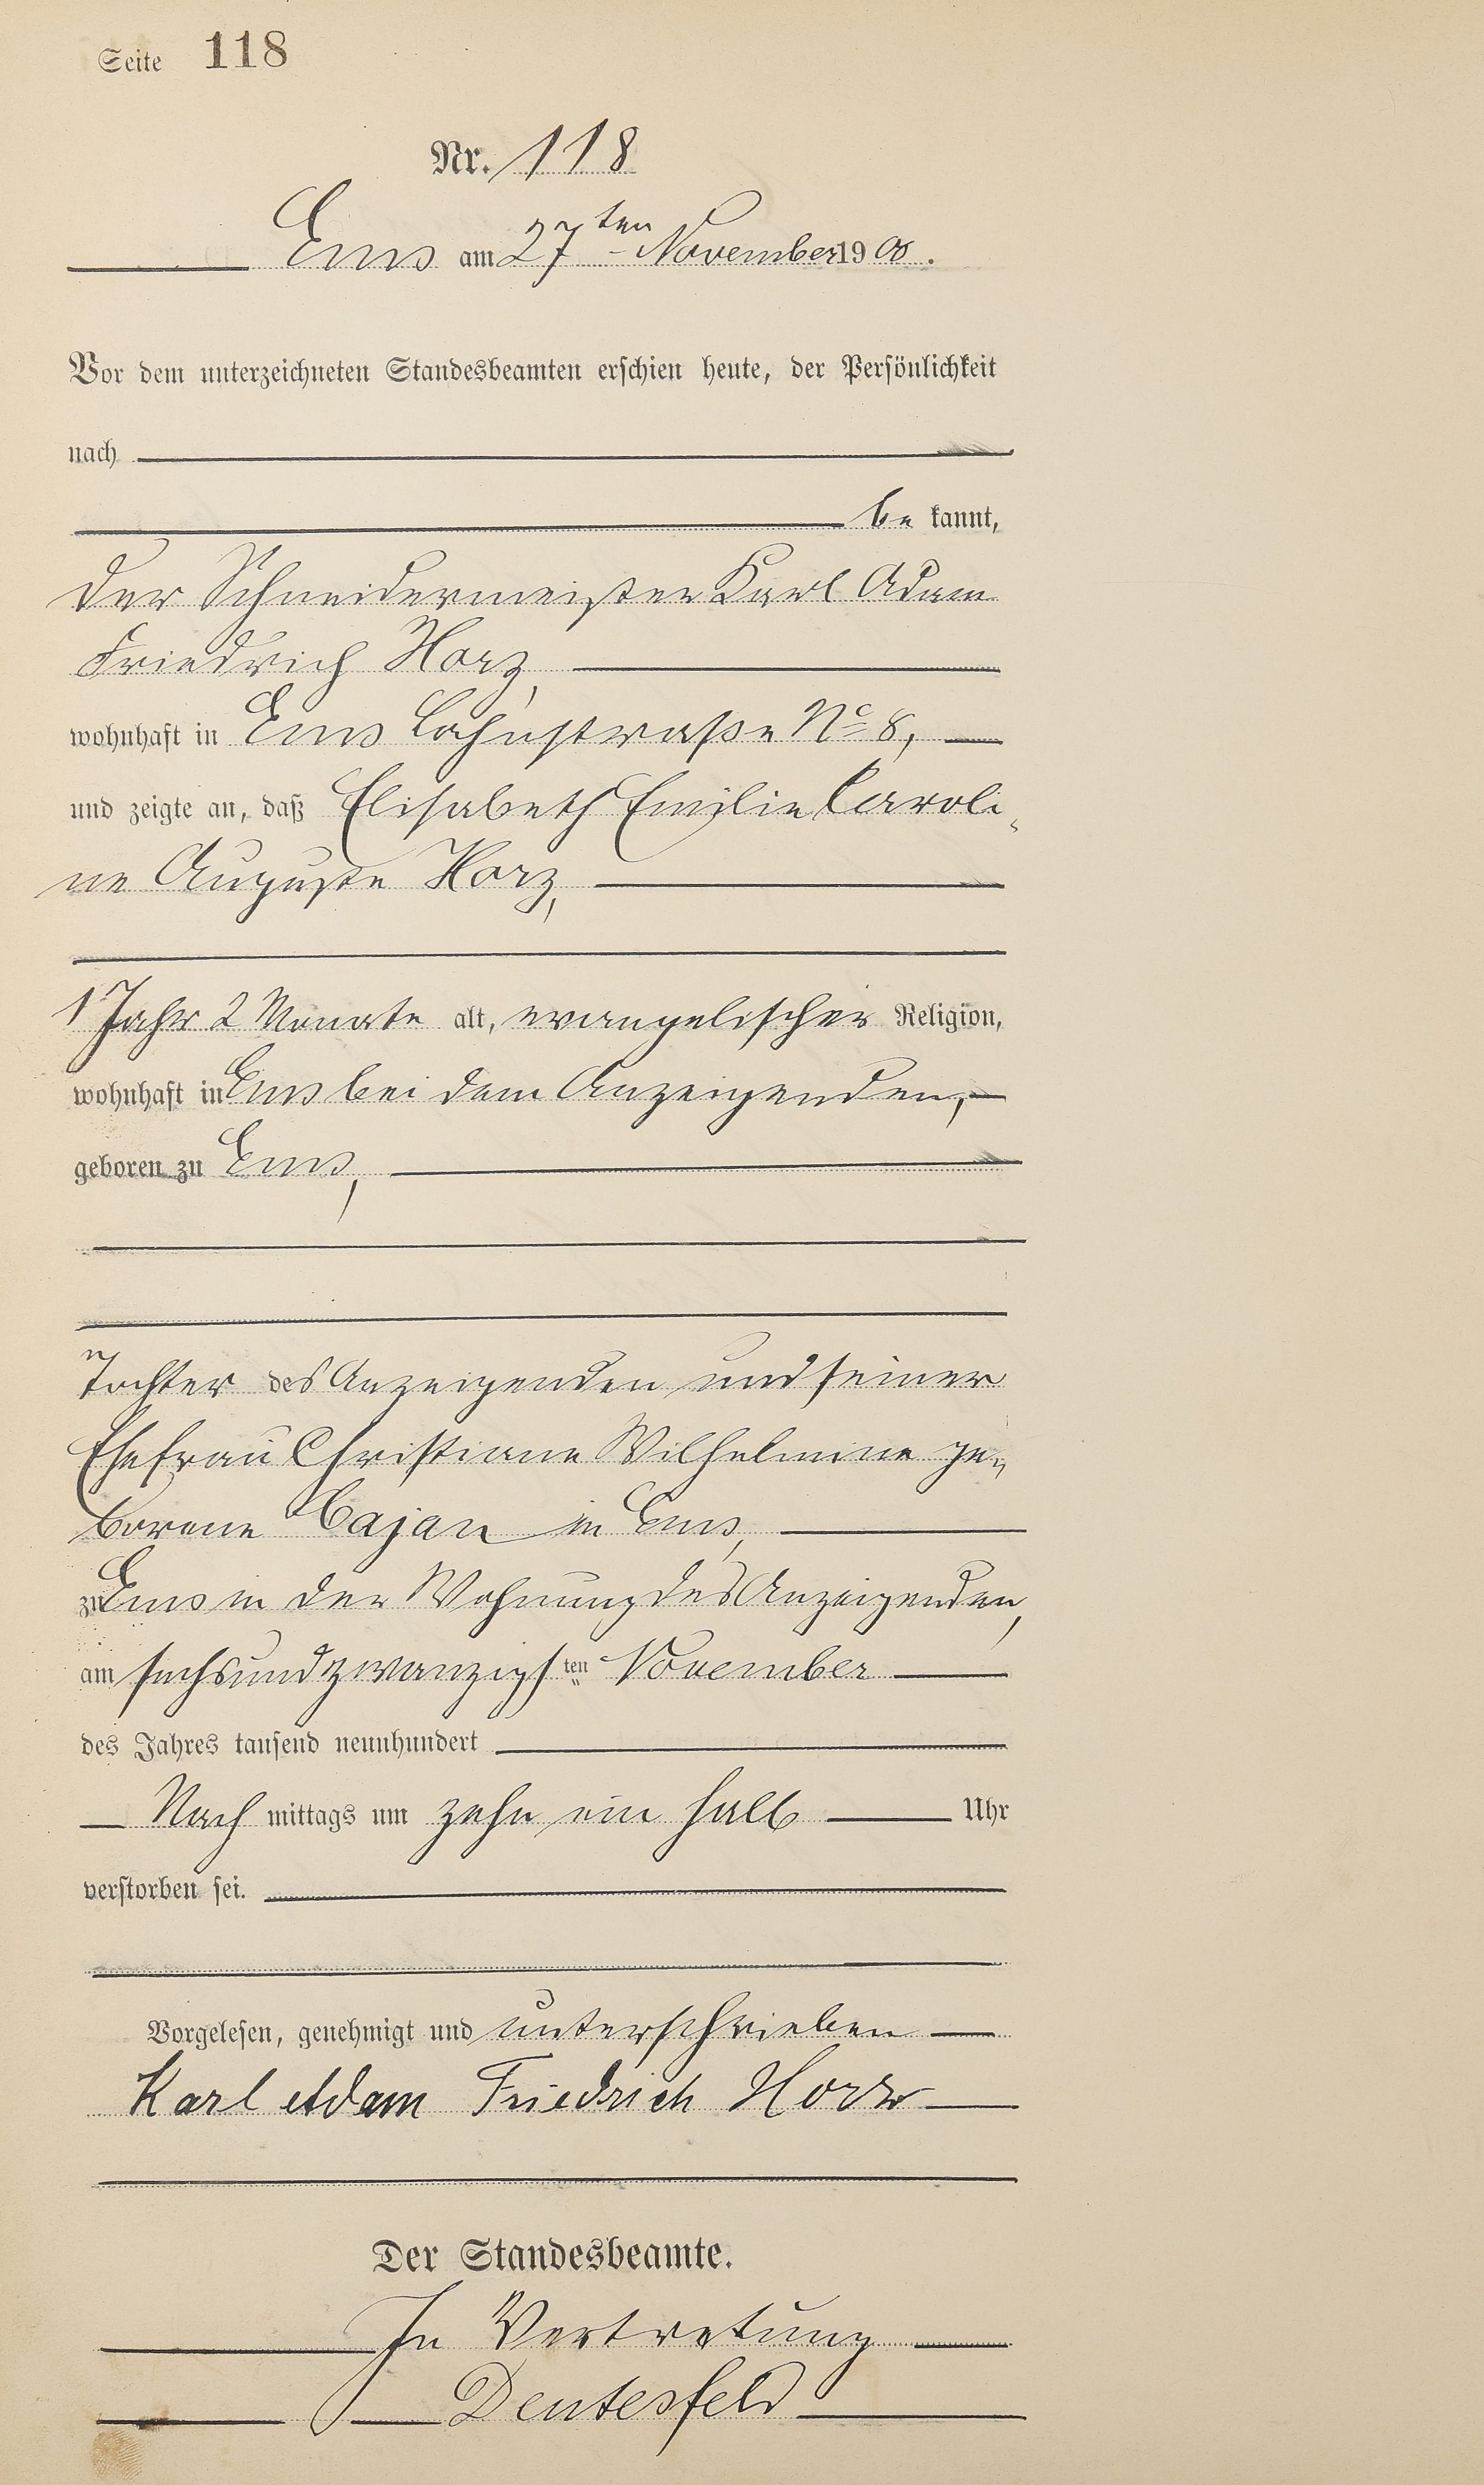 Seite 118
Nr. 118
Ems am 27ten November 1900.
Vor dem unterzeichneten Standesbeamten erschien heute, der Persönlichkeit
nach
be kannt,
der Schneidermeister Karl Adam
Friedrich Horz,
wohnhaft in Ems Lahnstraße No 8,
und zeigte an, daß Elisabeth Emilie Caroli-
ne Auguste Horz,
1 Jahr 2 Monate alt, evangelischer Religion,
wohnhaft in Ems bei dem Anzeigenden,
geboren zu Ems,
Tochter des Anzeigenden und seiner
Ehefrau Christiane Wilhelmine ge-
borene Cajan in Ems,
zu Ems in der Wohnung des Anzeigenden,
am sechsundzwanzigsten November
des Jahres tausend neunhundert
Nach mittags um zehn ein halb Uhr
verstorben sei.
Vorgelesen, genehmigt und unterschrieben
Karl Adam Friedrich Horz
Der Standesbeamte.
In Vertretung
Deutesfeld